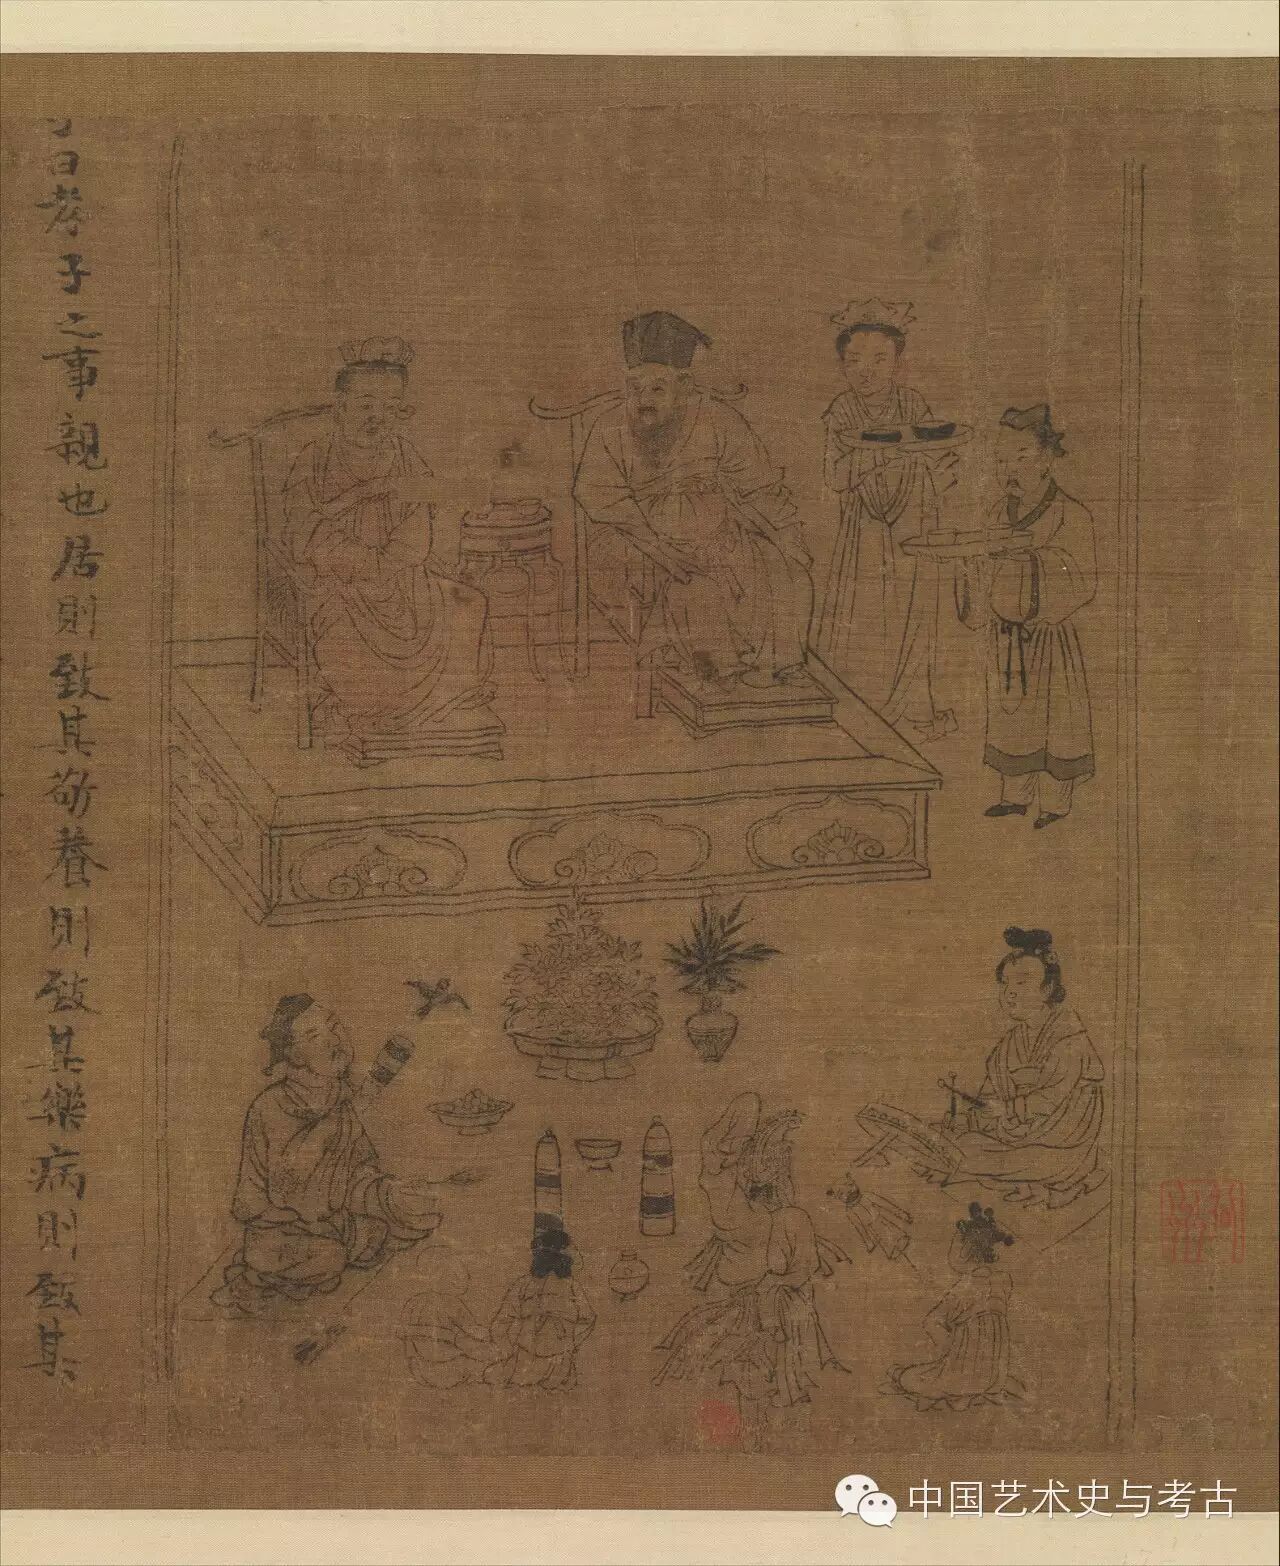 曰孝子之事親也居則致其敬養則致其樂病則致其
中国艺术史与考古